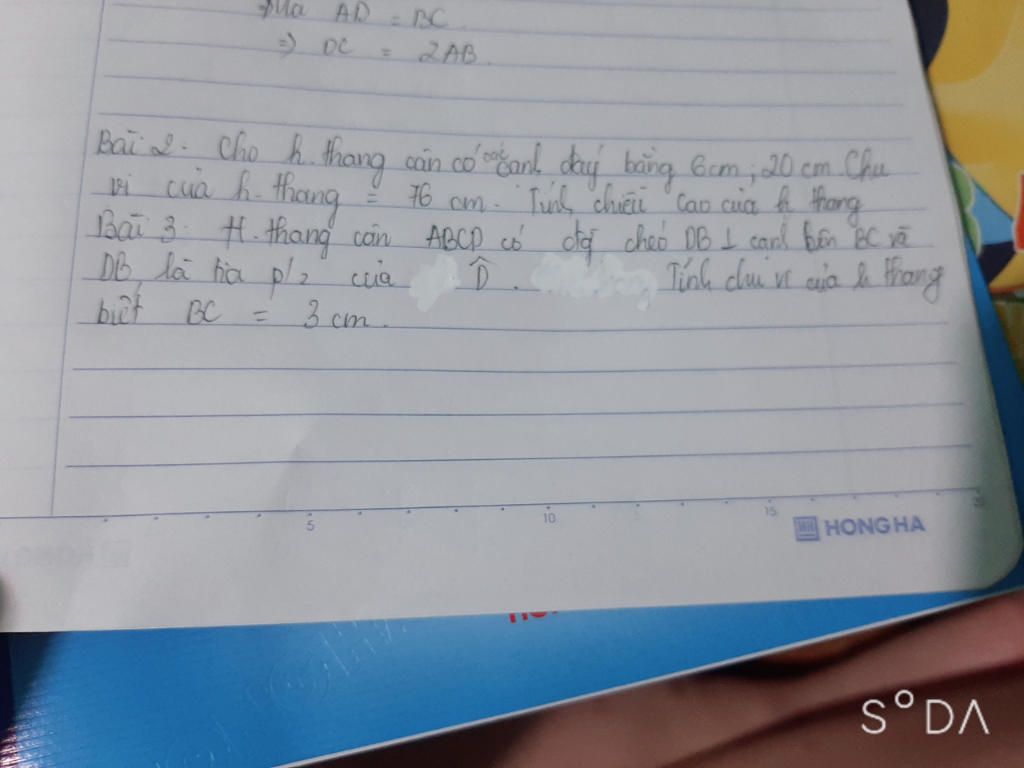 Mà AD = BC
=> DC = 2AB.
Bài 2: Cho h.thang cân có các cạnh đáy bằng 6cm; 20 cm. Chu
vi của h.thang = 76 cm. Tính chiều cao của h thang
Bài 3: H.thang cân ABCD có đg chéo DB ⊥ cạnh bên BC và
DB là tia p/2 của D̂. Tính chu vi của h thang
biết BC = 3 cm.
5 10 15 20
HONG HA
SODA